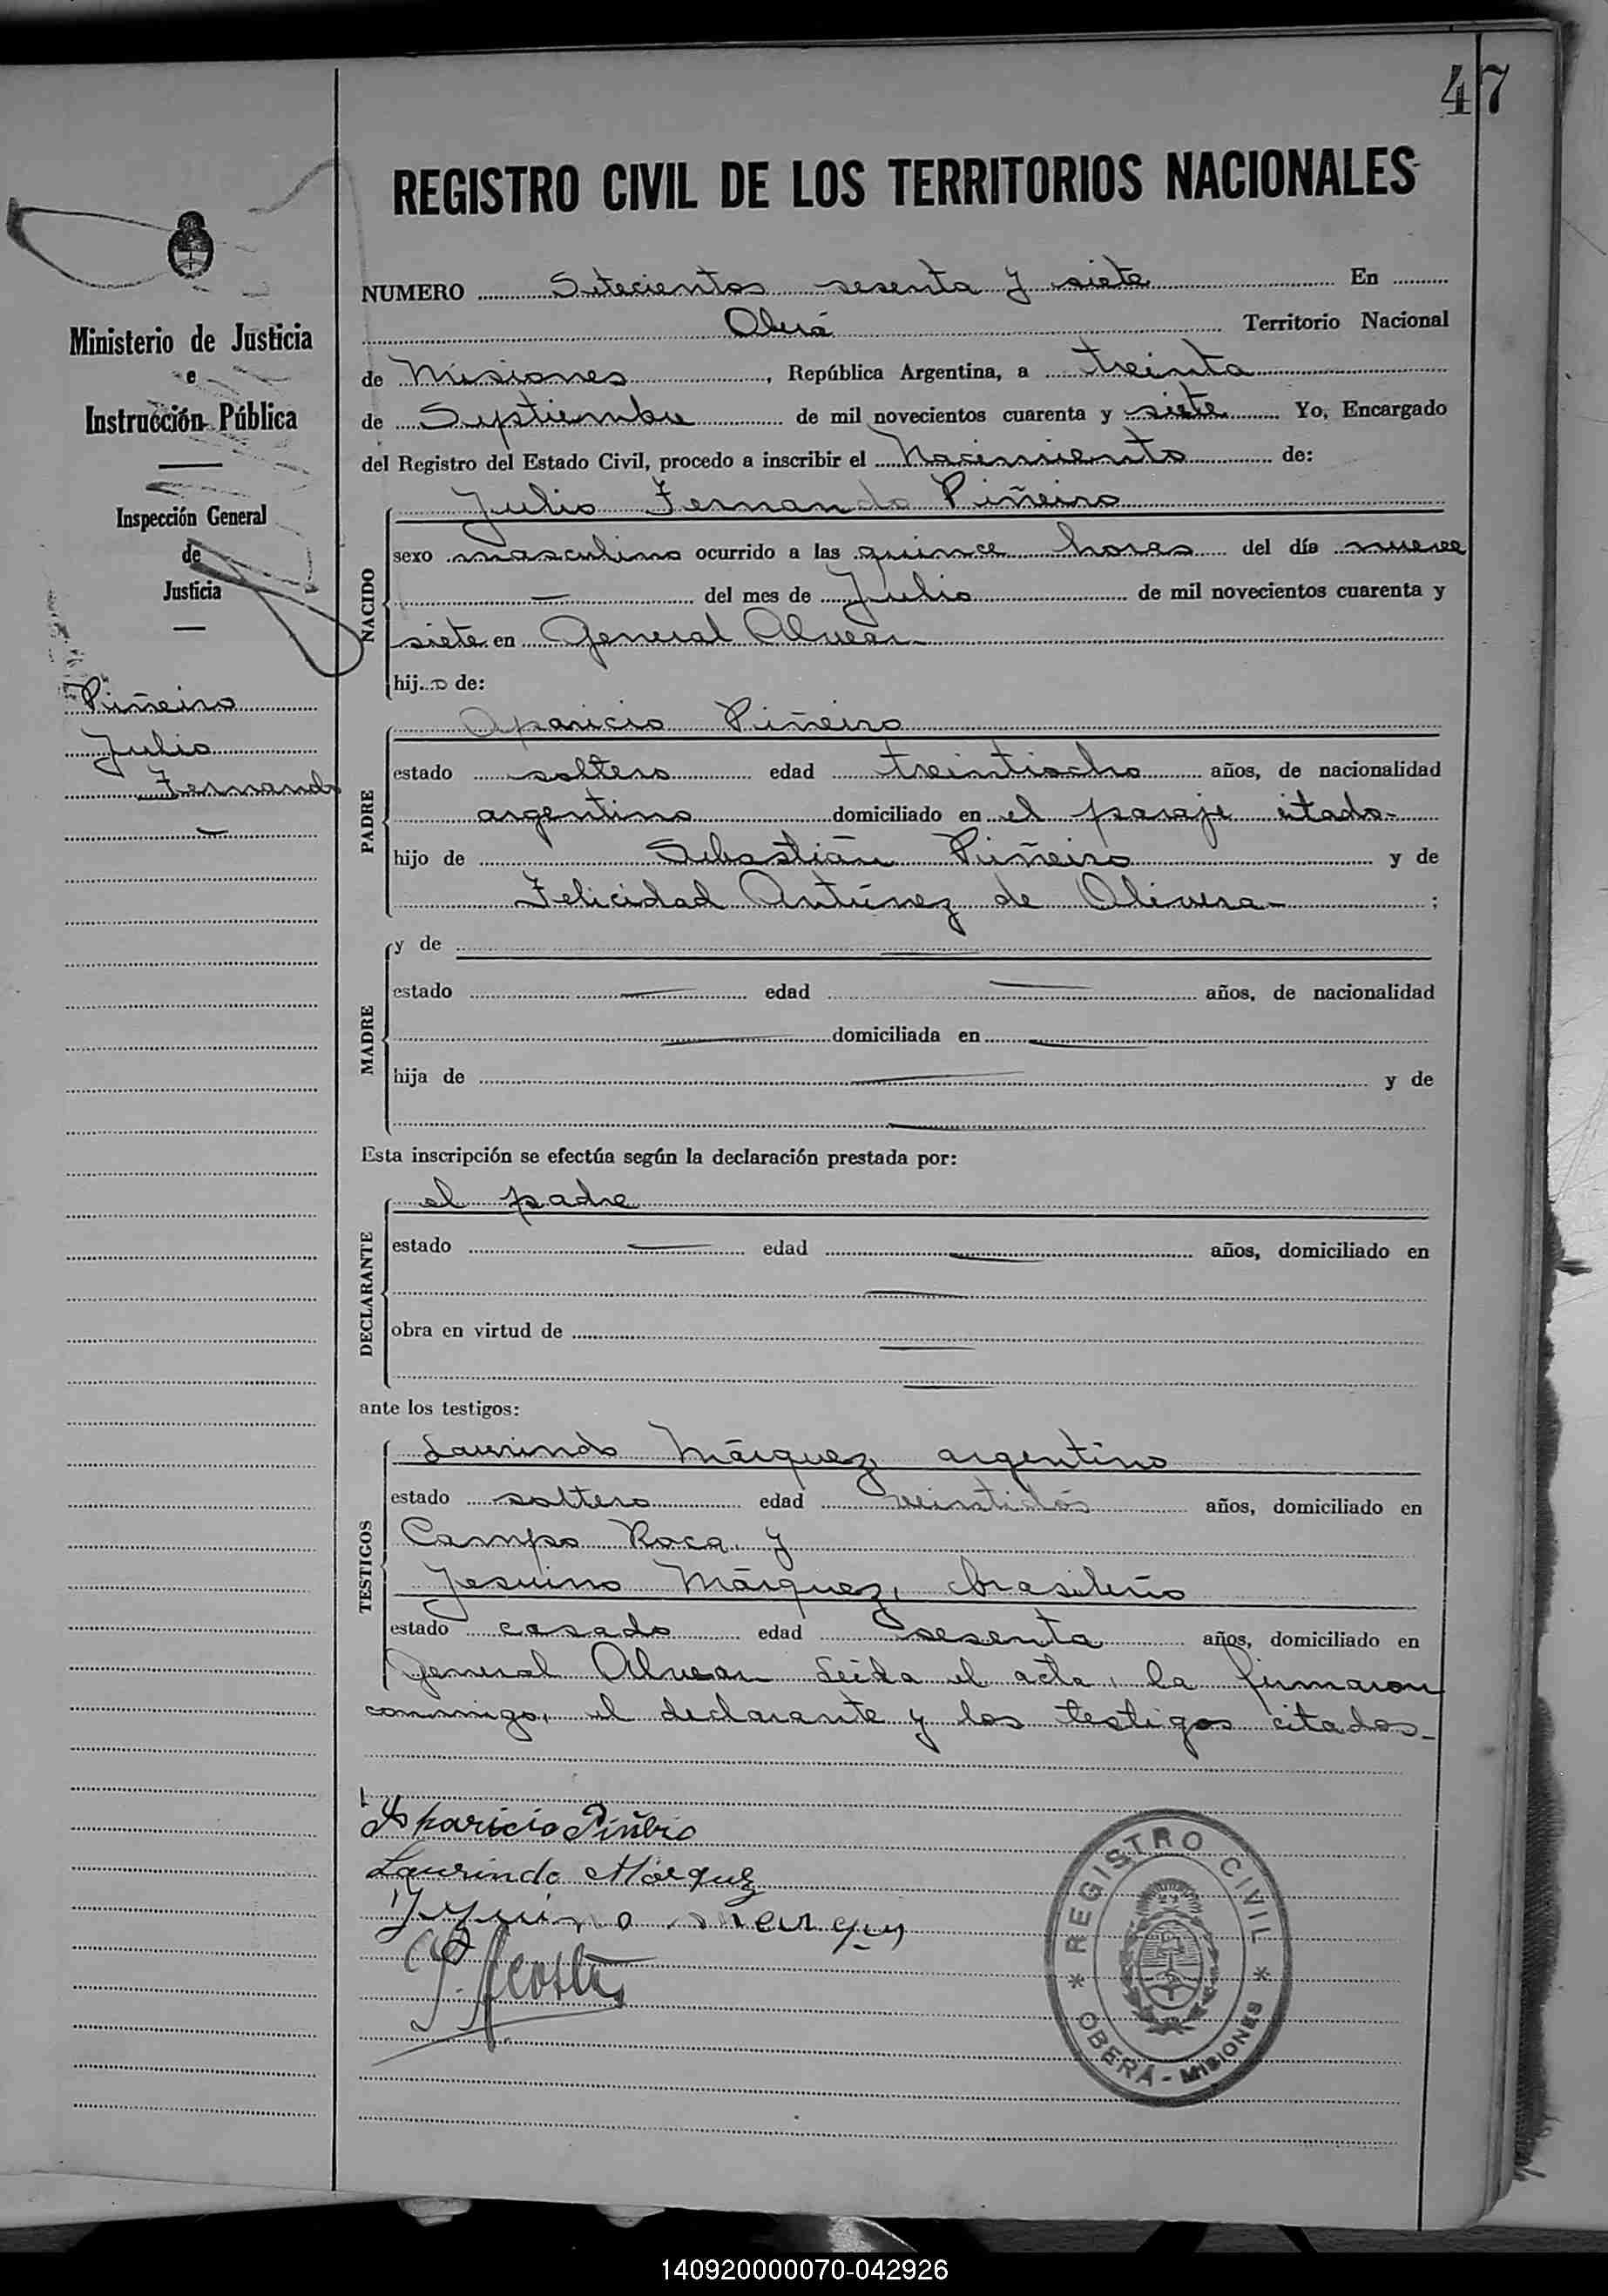 47
REGISTRO CIVIL DE LOS TERRITORIOS NACIONALES
Ministerio de Justicia
e
Instrucción Pública
Inspección General
de
Justicia
Piñeiro
Julio
Fernando
NUMERO Setecientos sesenta y siete En
Oberá Territorio Nacional
de Misiones, República Argentina, a treinta
de Septiembre de mil novecientos cuarenta y siete Yo, Encargado
del Registro del Estado Civil, procedo a inscribir el Nacimiento de:
NACIDO
Julio Fernando Piñeiro
sexo masculino ocurrido a las quince horas del día nueve
— del mes de Julio de mil novecientos cuarenta y
siete en General Alvear
hijo de:
PADRE
Aparicio Piñeiro
estado soltero edad treintiocho años, de nacionalidad
argentino domiciliado en el paraje citado-
hijo de Sebastián Piñeiro y de
Felicidad Antúnez de Olivera- ;
MADRE
y de —
estado — edad — años, de nacionalidad
— domiciliada en —
hija de — y de
—
Esta inscripción se efectúa según la declaración prestada por:
DECLARANTE
el padre
estado — edad — años, domiciliado en
—
obra en virtud de —
—
ante los testigos:
TESTIGOS
Laurindo Márquez, argentino
estado soltero edad veintidós años, domiciliado en
Campo Roca y
Jesuino Márquez, brasileño
estado casado edad sesenta años, domiciliado en
General Alvear Leída el acta, la firmaron
conmigo, el declarante y los testigos citados-
Aparicio Piñeiro
Laurindo Márquez
Jesuino Marques
P. Acosta
REGISTRO CIVIL
* OBERÁ - MISIONES *
140920000070-042926